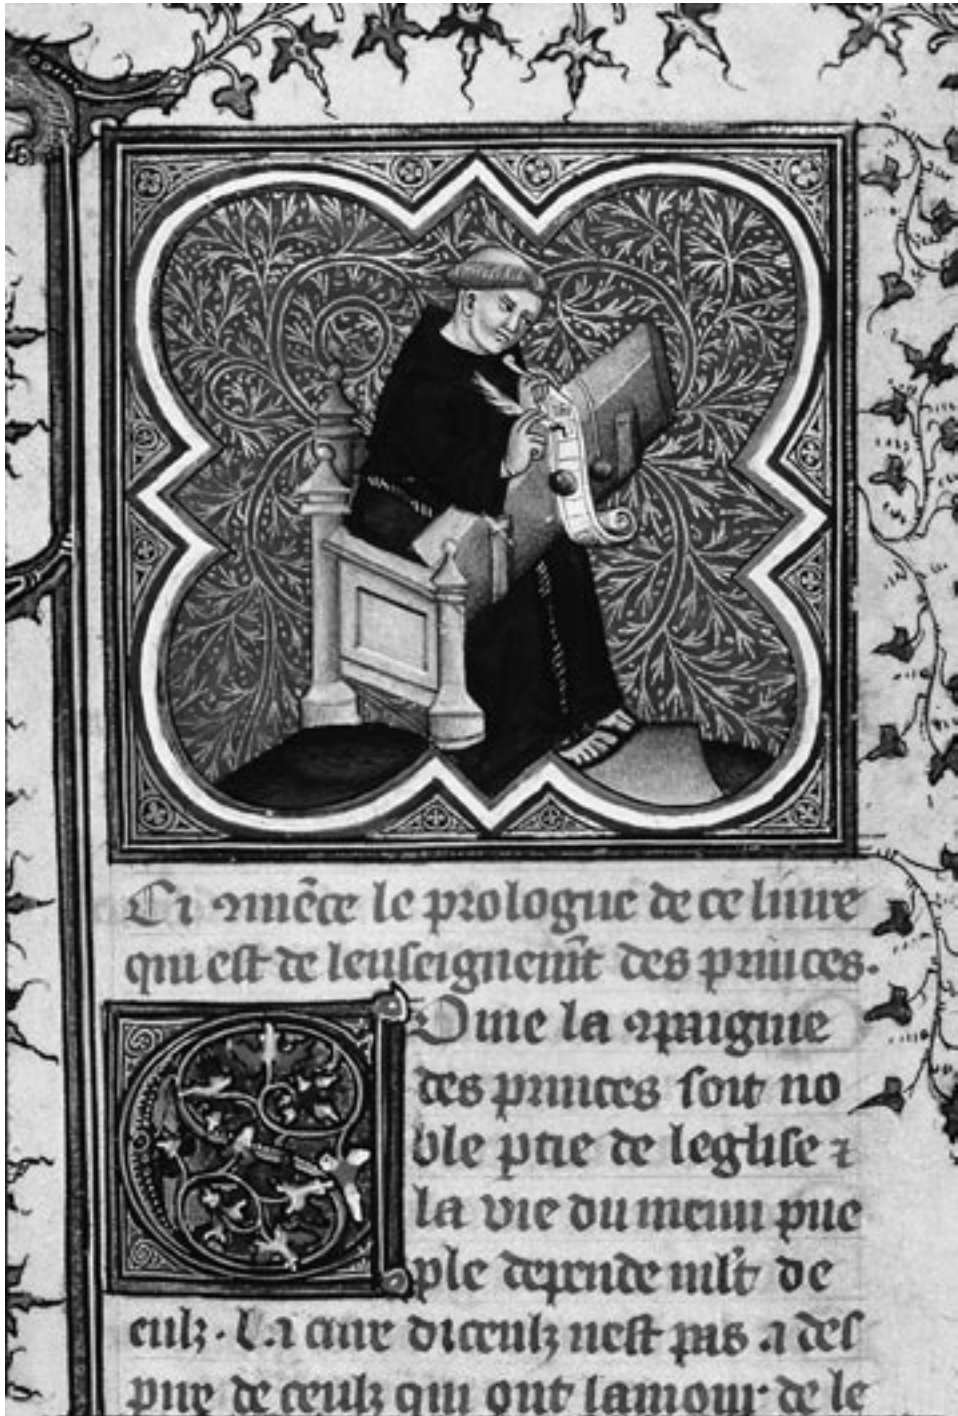 Ci 9mēce le prologue de ce liure
qui est de lenseignem̄t des princes.
Ome la 9paignie
des princes soit no
ble ptie de leglise ⁊
la vie du menu pue
ple depende mlt de
eulz. La cure diceulz nest pas a des
pire de ceulz qui ont lamour de le